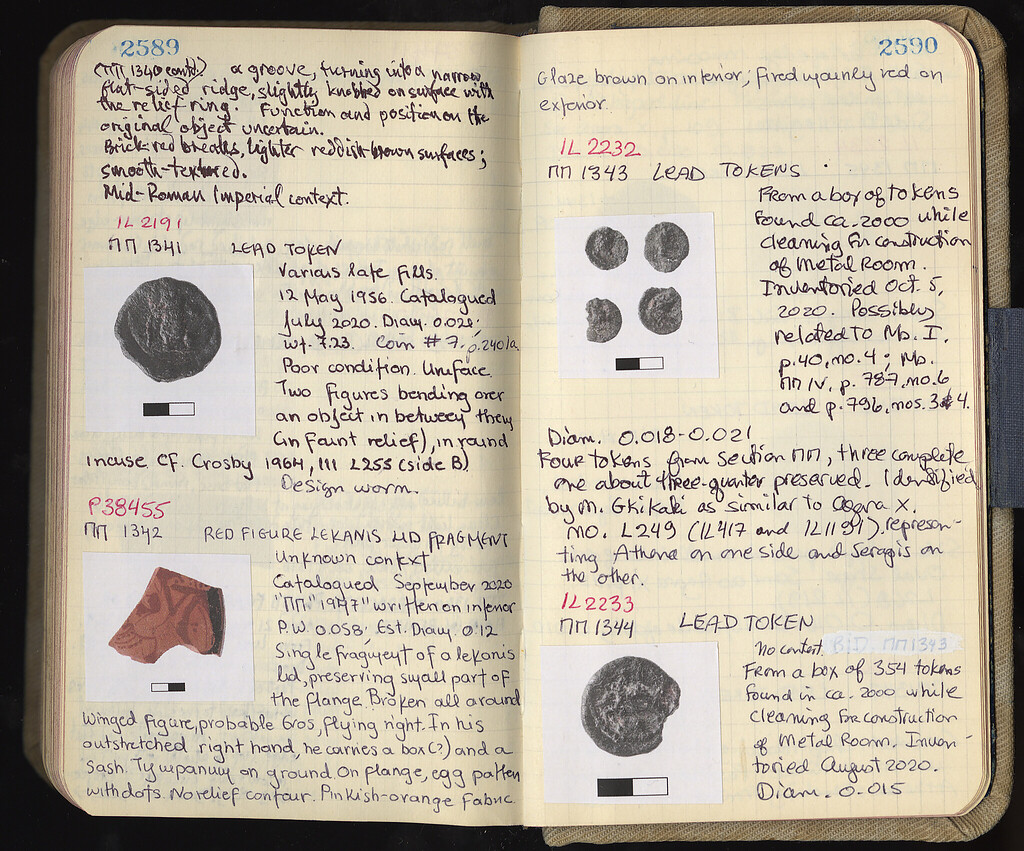 2589
(ΠΠ 1340 contd.) a groove, turning into a narrow
flat-sided ridge, slightly knobbed on surface with
the relief ring. Function and position on the
original object uncertain.
Brick-red breaks, lighter reddish-brown surfaces;
smooth-textured.
Mid-Roman Imperial context.
IL 2191
ΠΠ 1341 LEAD TOKEN
Various late fills.
12 May 1956. Catalogued
July 2020. Diam. 0.021;
wt. 7.23. Coin # 7.
Poor condition. Uniface.
Two figures bending over
an object in between them
(in faint relief), in round
incuse. Cf. Crosby 1964, III L255 (side B).
Design worn.
P38455
ΠΠ 1342 RED FIGURE LEKANIS LID FRAGMENT
Unknown context
Catalogued September 2020
"ΠΠ" 1947" written on interior
P.W. 0.058. Est. Diam. 0.12
Single fragment of a lekanis
lid, preserving small part of
the flange. Broken all around
Winged figure, probable Eros, flying right. In his
outstretched right hand, he carries a box (?) and a
sash. Tympanum on ground. On flange, egg pattern
with dots. No relief contour. Pinkish-orange Fabric.
2590
Glaze brown on interior; fired mainly red on
exterior.
IL 2232
ΠΠ 1343 LEAD TOKENS
From a box of tokens
Found ca. 2000 while
cleaning for construction
of Metal Room.
Inventoried Oct. 5,
2020. Possibly
related to Nb. I.
p.40, no. 4; Nb.
ΠΠ IV. p. 787, no. 6
and p. 796, nos. 3 & 4.
Diam. 0.018-0.021
Four tokens from Section ΠΠ, three complete
one about three-quarter preserved. Identified
by M. Gkikaki as similar to Agora X.
no. L249 (IL417 and IL1191). represen-
ting Athena on one side and Serapis on
the other.
IL2233
ΠΠ 1344 LEAD TOKEN
No context. B.D. ΠΠ 1343
From a box of 354 tokens
Found in ca. 2000 while
cleaning for construction
of Metal Room. Inven-
toried August 2020.
Diam. 0.015